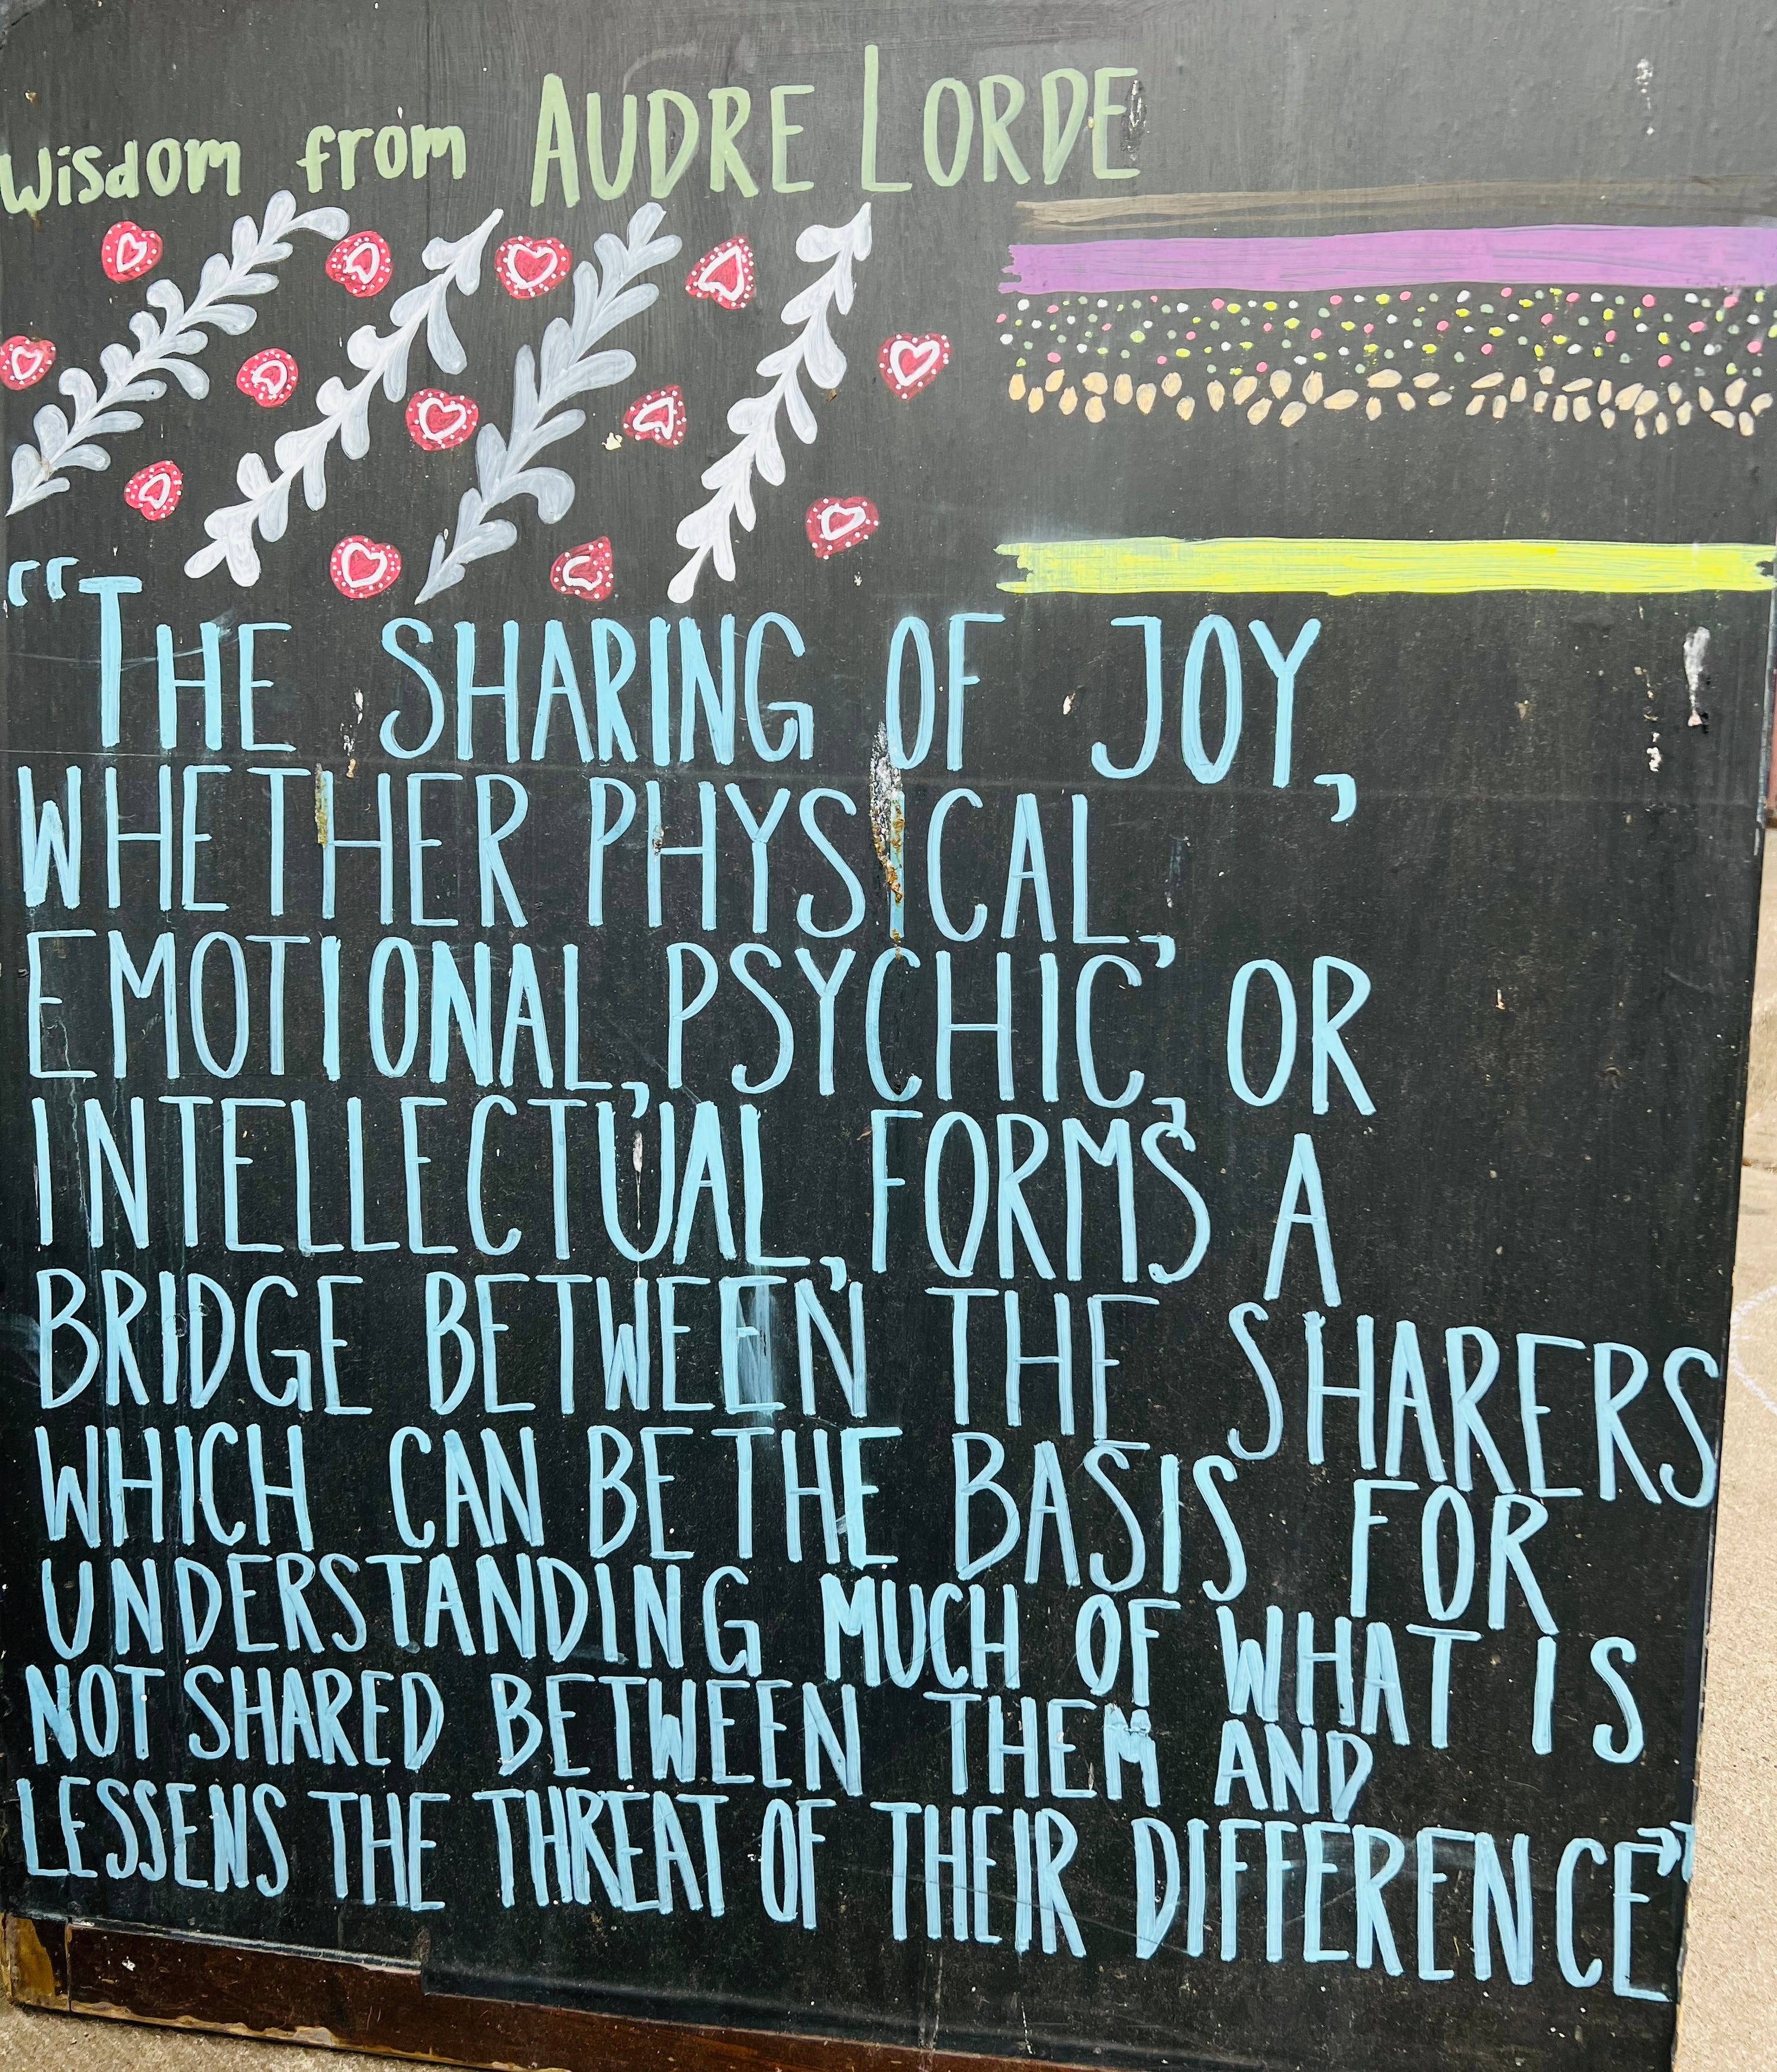 Wisdom from AUDRE LORDE
"THE SHARING OF JOY,
WHETHER PHYSICAL,
EMOTIONAL, PSYCHIC, OR
INTELLECTUAL, FORMS A
BRIDGE BETWEEN THE SHARERS
WHICH CAN BE THE BASIS FOR
UNDERSTANDING MUCH OF WHAT IS
NOT SHARED BETWEEN THEM AND
LESSENS THE THREAT OF THEIR DIFFERENCE"